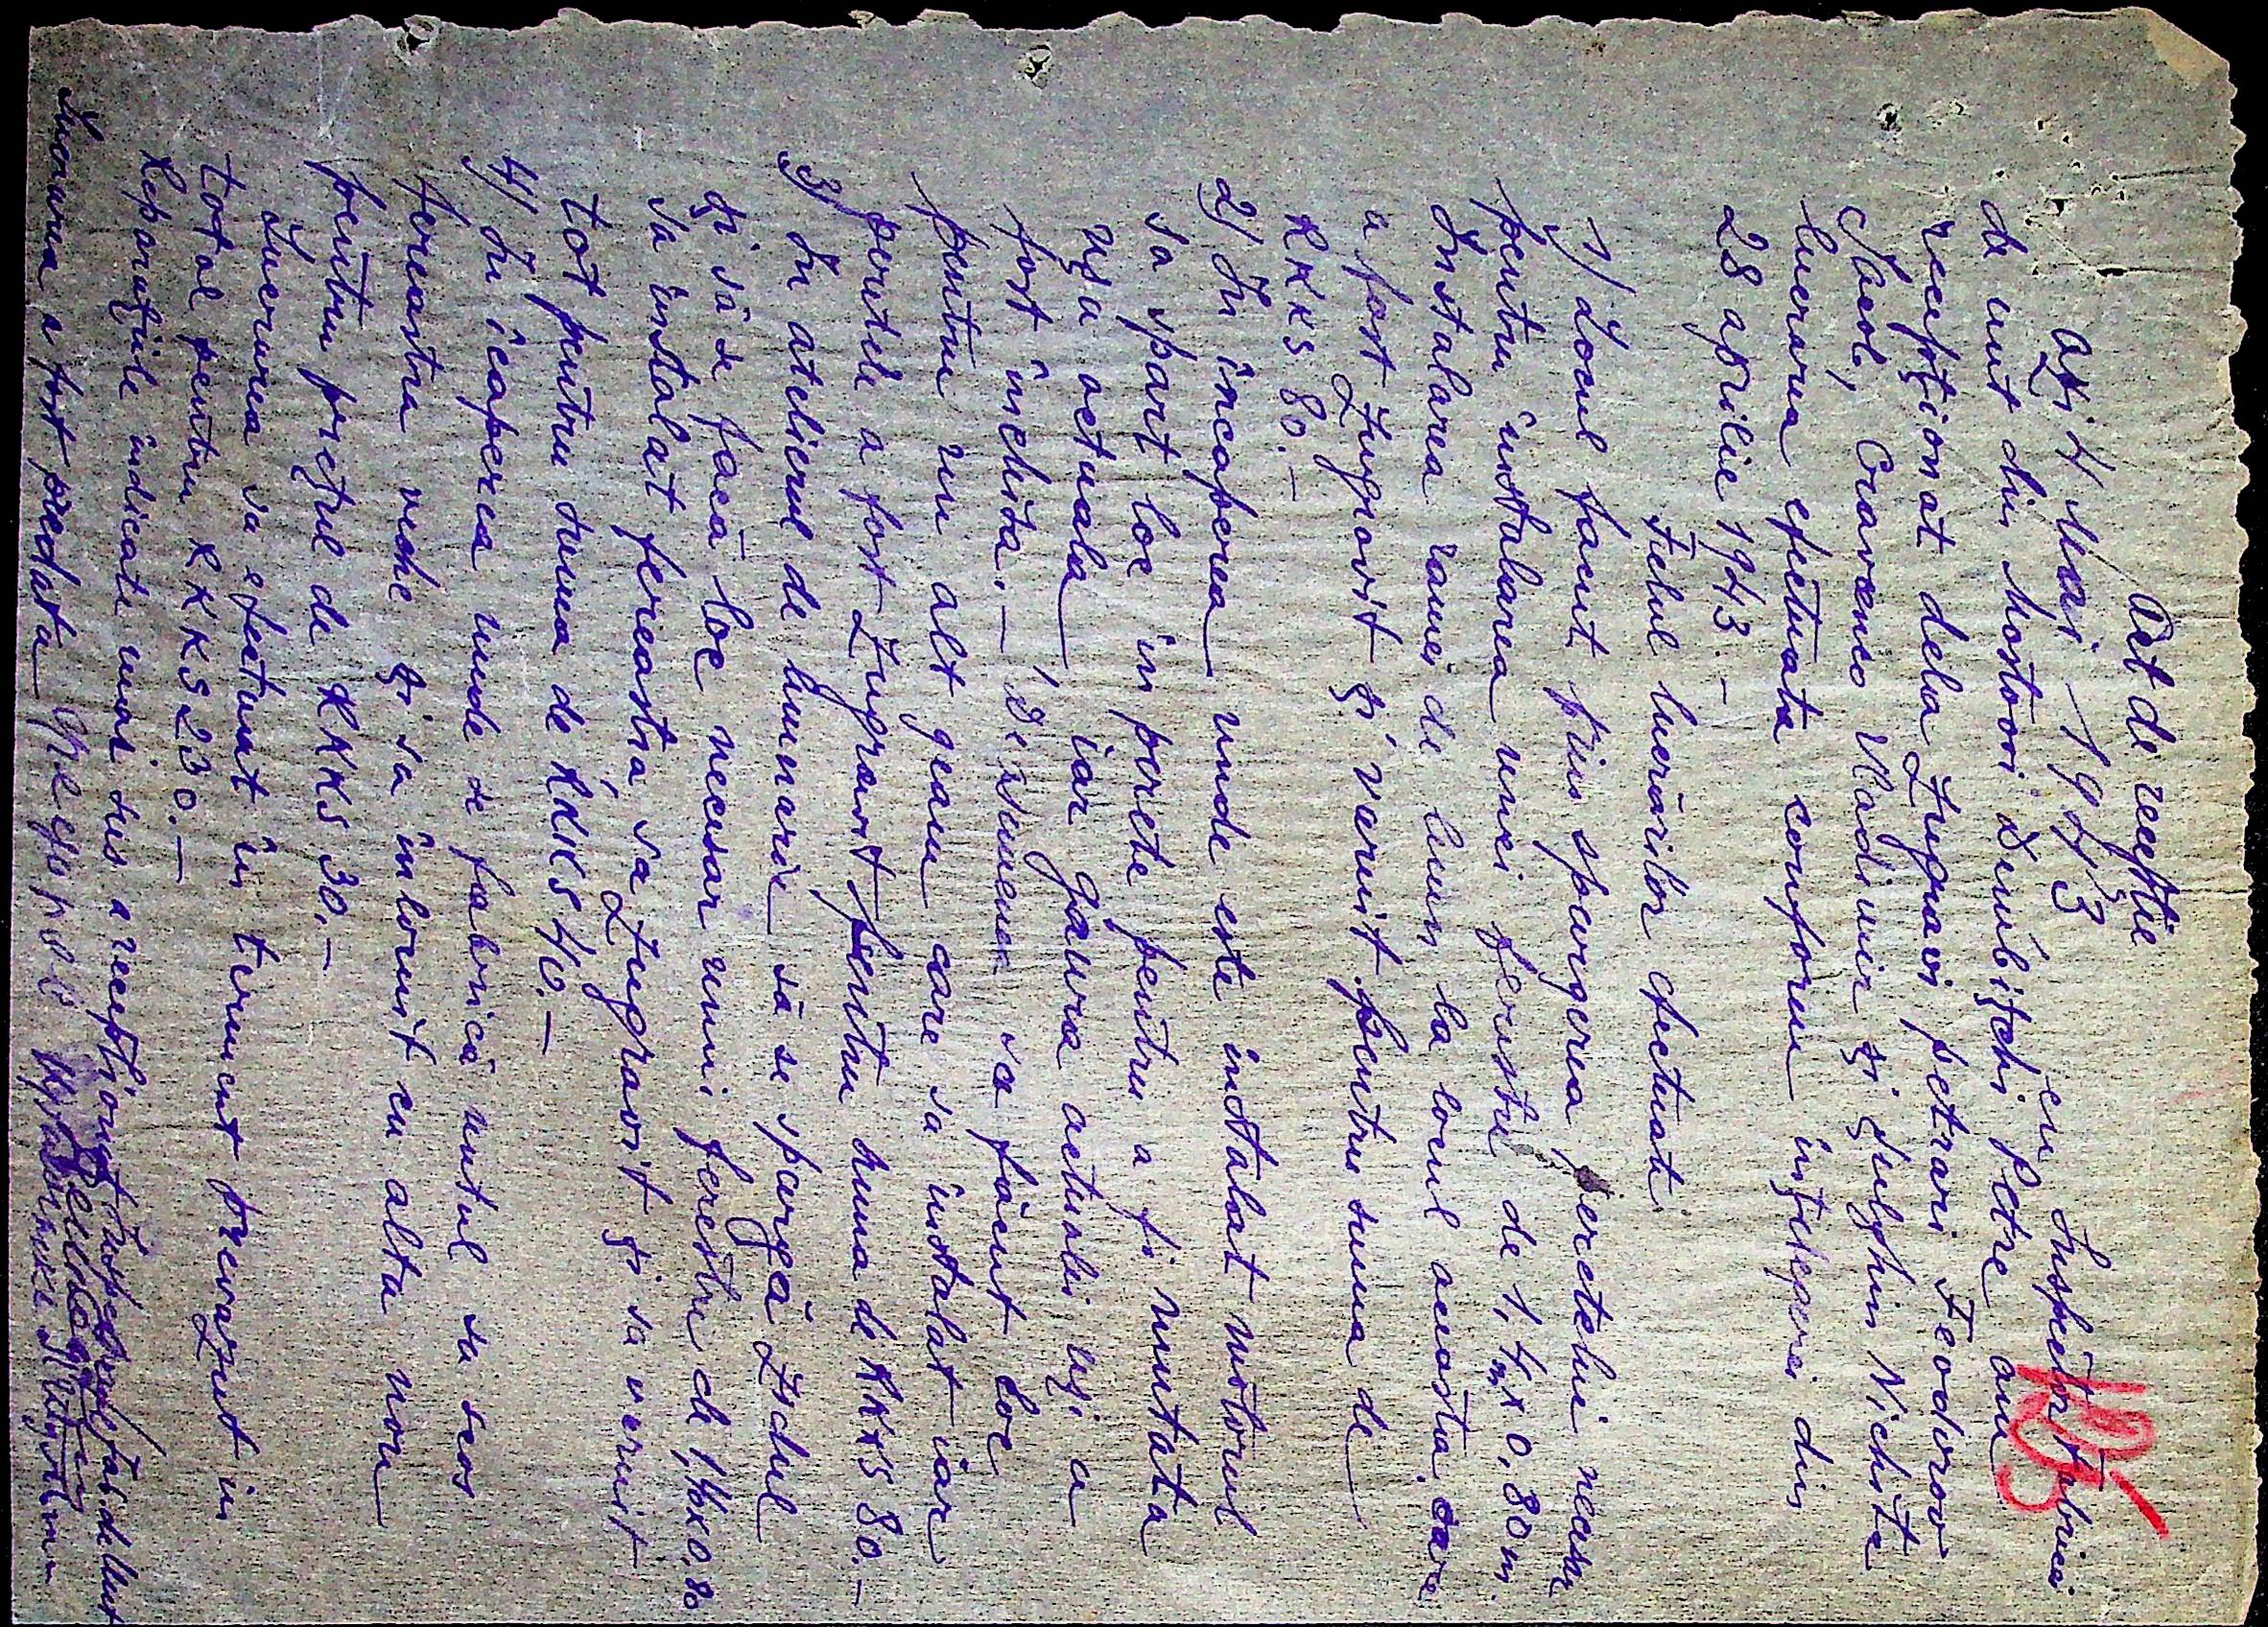 135
Act de recepție
Azi 4 Mai 1943 eu Inspector Fabricei
de unt din Mostovoi Dembițchi Petre am
recepționat dela Zugravi, petrari Feodorov
Iacob, Cravcenco Vladimir și Julghin Nichita
lucrarea efectuata conform ințelegerei din
28 aprilie 1943.–
Felul lucrărilor efectuate
1) Locul facut prin spargerea peretelui necesar
pentru instalarea unei ferestre de 1,4m x 0,80 m.
Instalarea ramei de lemn la locul acesta, care
a fost Zugravit și vernit pentru suma de
RKKS 80.–
2) In incaperea unde este instalat motorul
sa spart loc in perete pentru a fi mutata
ușa actuala iar gaura actualei uși a
fost inchisa.– Deasemenea sa făcut loc
pentru un alt geam care sa instalat iar
peretele a fost Zugravit pentru suma de RKKS 80.–
3) In atelierul de lumanari să se spargă Zidul
și să se facă loc necesar unui ferestre de 1,4x0.80
sa instalat fereastra, sa Zugravit și sa vernit
tot pentru suma de RKKS 40.–
4) In icaperea unde se fabrică untul sa scos
fereastra veche și sa inlocuit cu alta nou
pentru prețul de RKKS 30.–
Lucrarea sa efectuat in termenul prevazut in
total pentru RKKS 230.–
Reparațiile indicate mai sus a recepționat Inspectorul Fab. de Unt
Lucrarea a fost predata